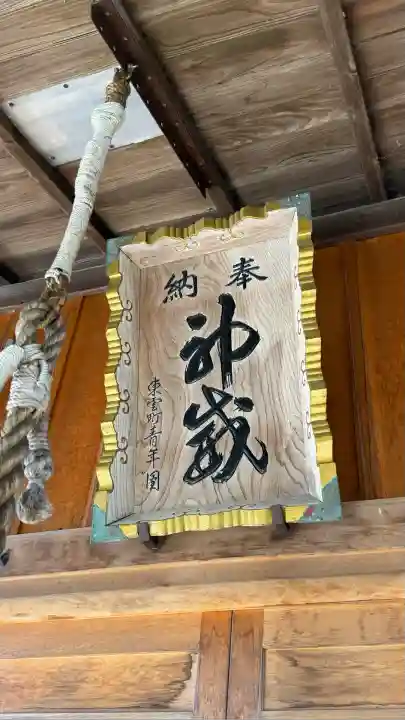 奉納
神威
東雲町青年團